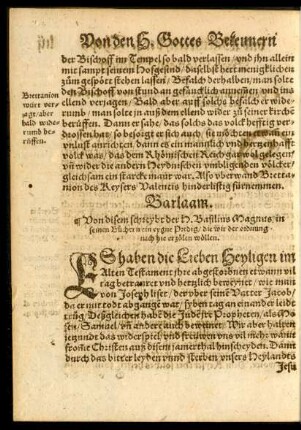 Von den H. Gottes Bekennern
der Bischoff im Tempel so bald verlassen / vnd ihn allein
mit sampt seinem Hofgesind / daselbst hett menigklichen
zům gespött stehen lassen / Befalch derhalben / man solte
den Bischoff von stund an gefäncklich annemen / vnd ins
ellend verjagen / Bald aber auff solchs befalch er wide-
rumb / man solte jn auß dem ellend wider zů seiner kirchen
berůffen. Dann er sahe / das das volck hefftig ver-
drossen
Bretranion
würt ver-
jagt / aber
bald wide-
rumb be-
rüffen.
volck war / das dem Rhömischen Reich gar wol gelegen /
vnd wider die andern Heydnischen vmbligenden völcker /
gleichsam ein starcke maur war. Also vberwand Bretra-
nion des Keysers Valentis hinderlistig fürnemmen.
Barlaam.
Von disem schreybt der H. Basilius Magnus, in
seinen Büchern ein eygne Predig, die wir der ordnung
nach hie erzölen wöllen.
ES haben die Lieben Heyligen im
Alten Testament ihre abgestorbnen etwann vil
tag betrauret vnd hertzlich beweynet / wie man
von Joseph liset / der vber seinen Vatter Jacob /
da er mit todt abgangẽ war / siben tag an einander leidt
trůg. Deßgleichen habẽ die Juden jr Propheten / als Mo-
sen / Samuel / vñ andere auch beweinet. Wir aber halten
jetzundt das widerspil vnd frewen vns vil mehr wañ
fromme Christen auß disem jamerthal hinscheyden. Dann
durch das bitter leyden vnnd sterben vnsers Heylandts
Jesu